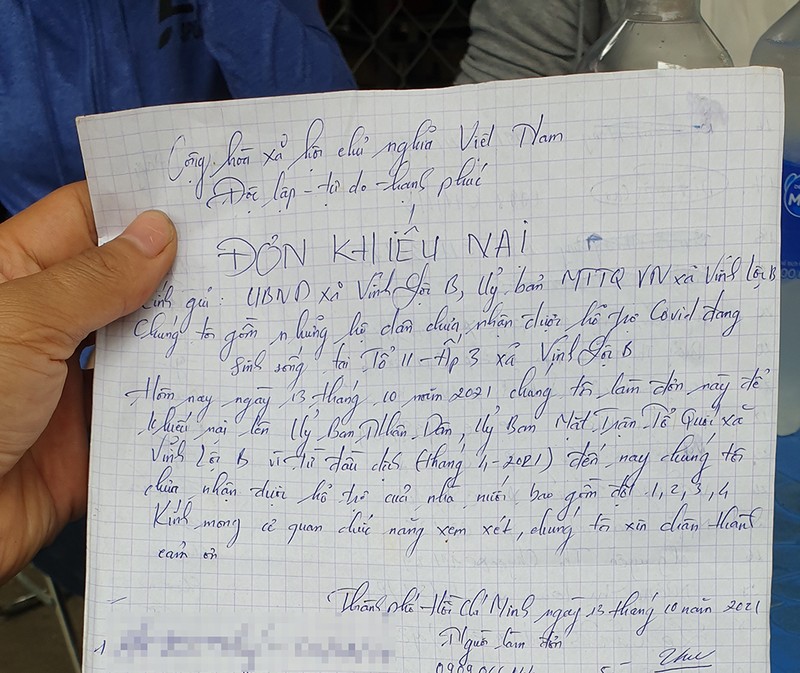 Cộng hòa xã hội chủ nghĩa Việt Nam
Độc lập - tự do - hạnh phúc
ĐƠN KHIẾU NẠI
Kính gửi : UBND xã Vĩnh Lộc B, Uỷ ban MTTQ VN xã Vĩnh Lộc B
Chúng tôi gồm những hộ dân chưa nhận được hổ trợ Covid đang
sinh sống tại Tổ 11 - Ấp 3 xã Vĩnh Lộc B
Hôm nay ngày 13 tháng 10 năm 2021 chúng tôi làm đơn này để
khiếu nại lên Uỷ Ban Nhân Dân, Uỷ Ban Mặt Trận Tổ Quốc xã
Vĩnh Lộc B vì từ đầu dịch (tháng 4-2021) đến nay chúng tôi
chưa nhận được hổ trợ của nhà nước bao gồm đợt 1, 2, 3, 4
Kính mong cơ quan chức năng xem xét, chúng tôi xin chân thành
cảm ơn
Thành phố Hồ Chí Minh ngày 13 tháng 10 năm 2021
Người làm đơn
1